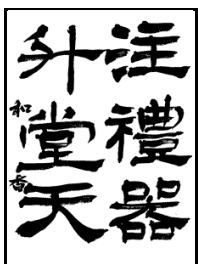 注禮器
升堂天
和香